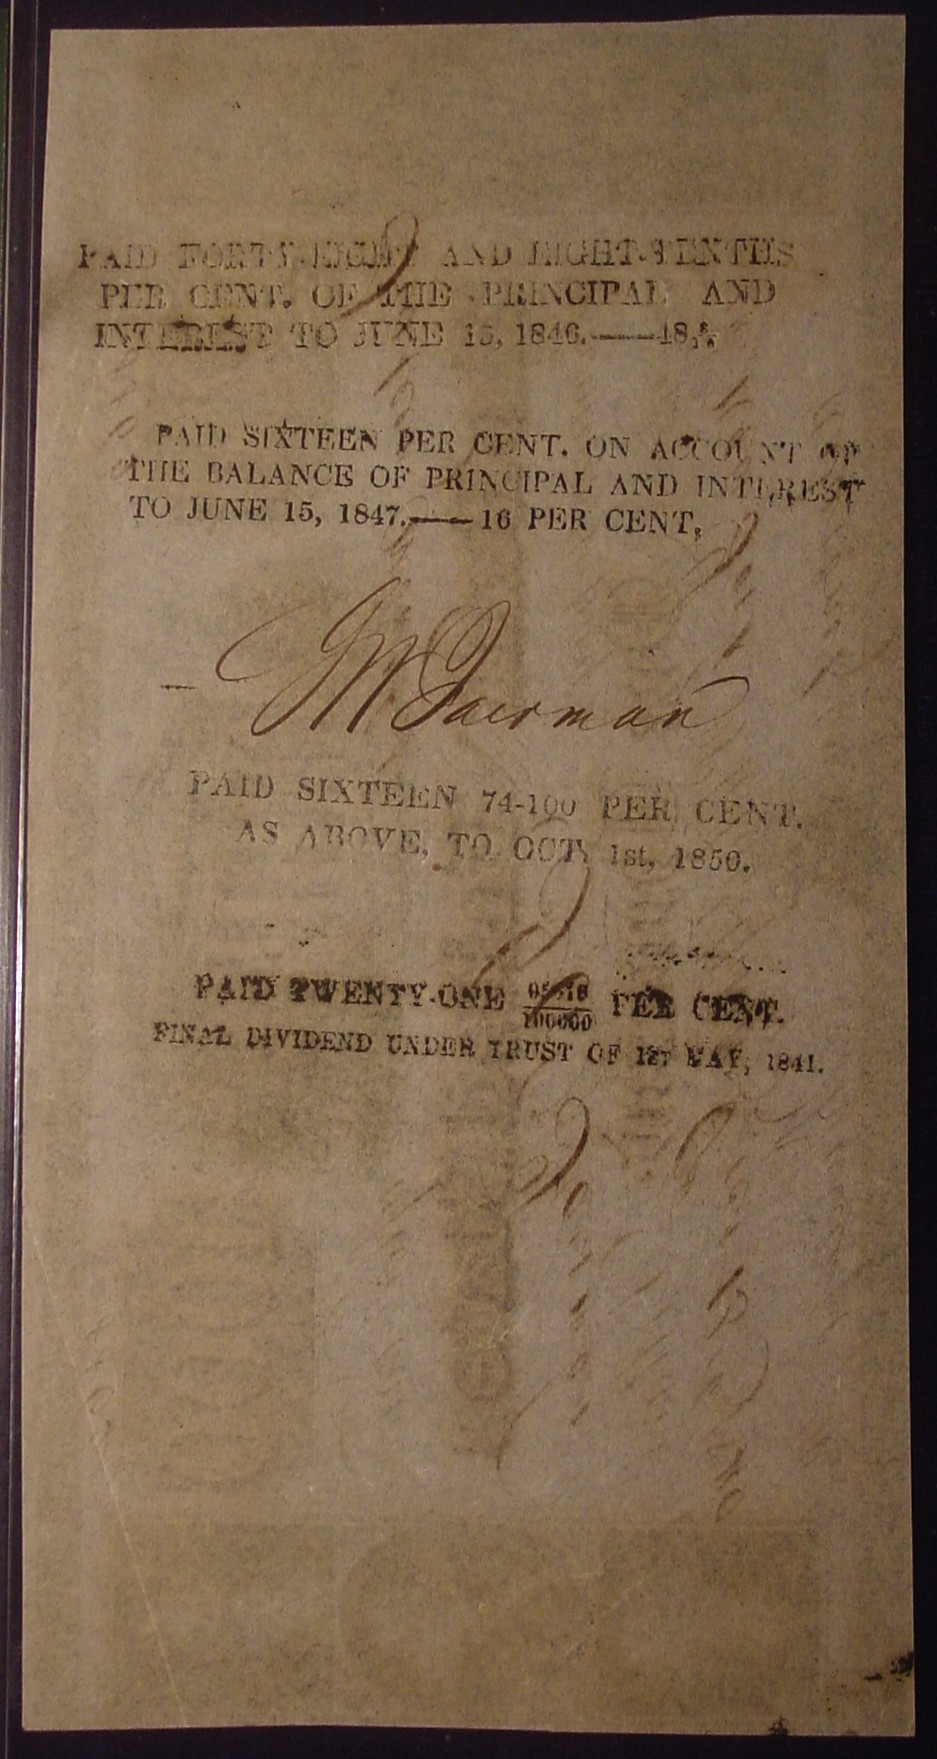 PAID FORTY-EIGHT AND EIGHT-TENTHS
PER CENT. OF THE PRINCIPAL AND
INTEREST TO JUNE 15, 1846.——48 8/10
PAID SIXTEEN PER CENT. ON ACCOUNT OF
THE BALANCE OF PRINCIPAL AND INTEREST
TO JUNE 15, 1847.——16 PER CENT,
Fairman
PAID SIXTEEN 74-100 PER CENT.
AS ABOVE, TO OCT. 1st, 1850.
PAID TWENTY-ONE PER CENT.
FINAL DIVIDEND UNDER TRUST OF 1ST MAY, 1841.